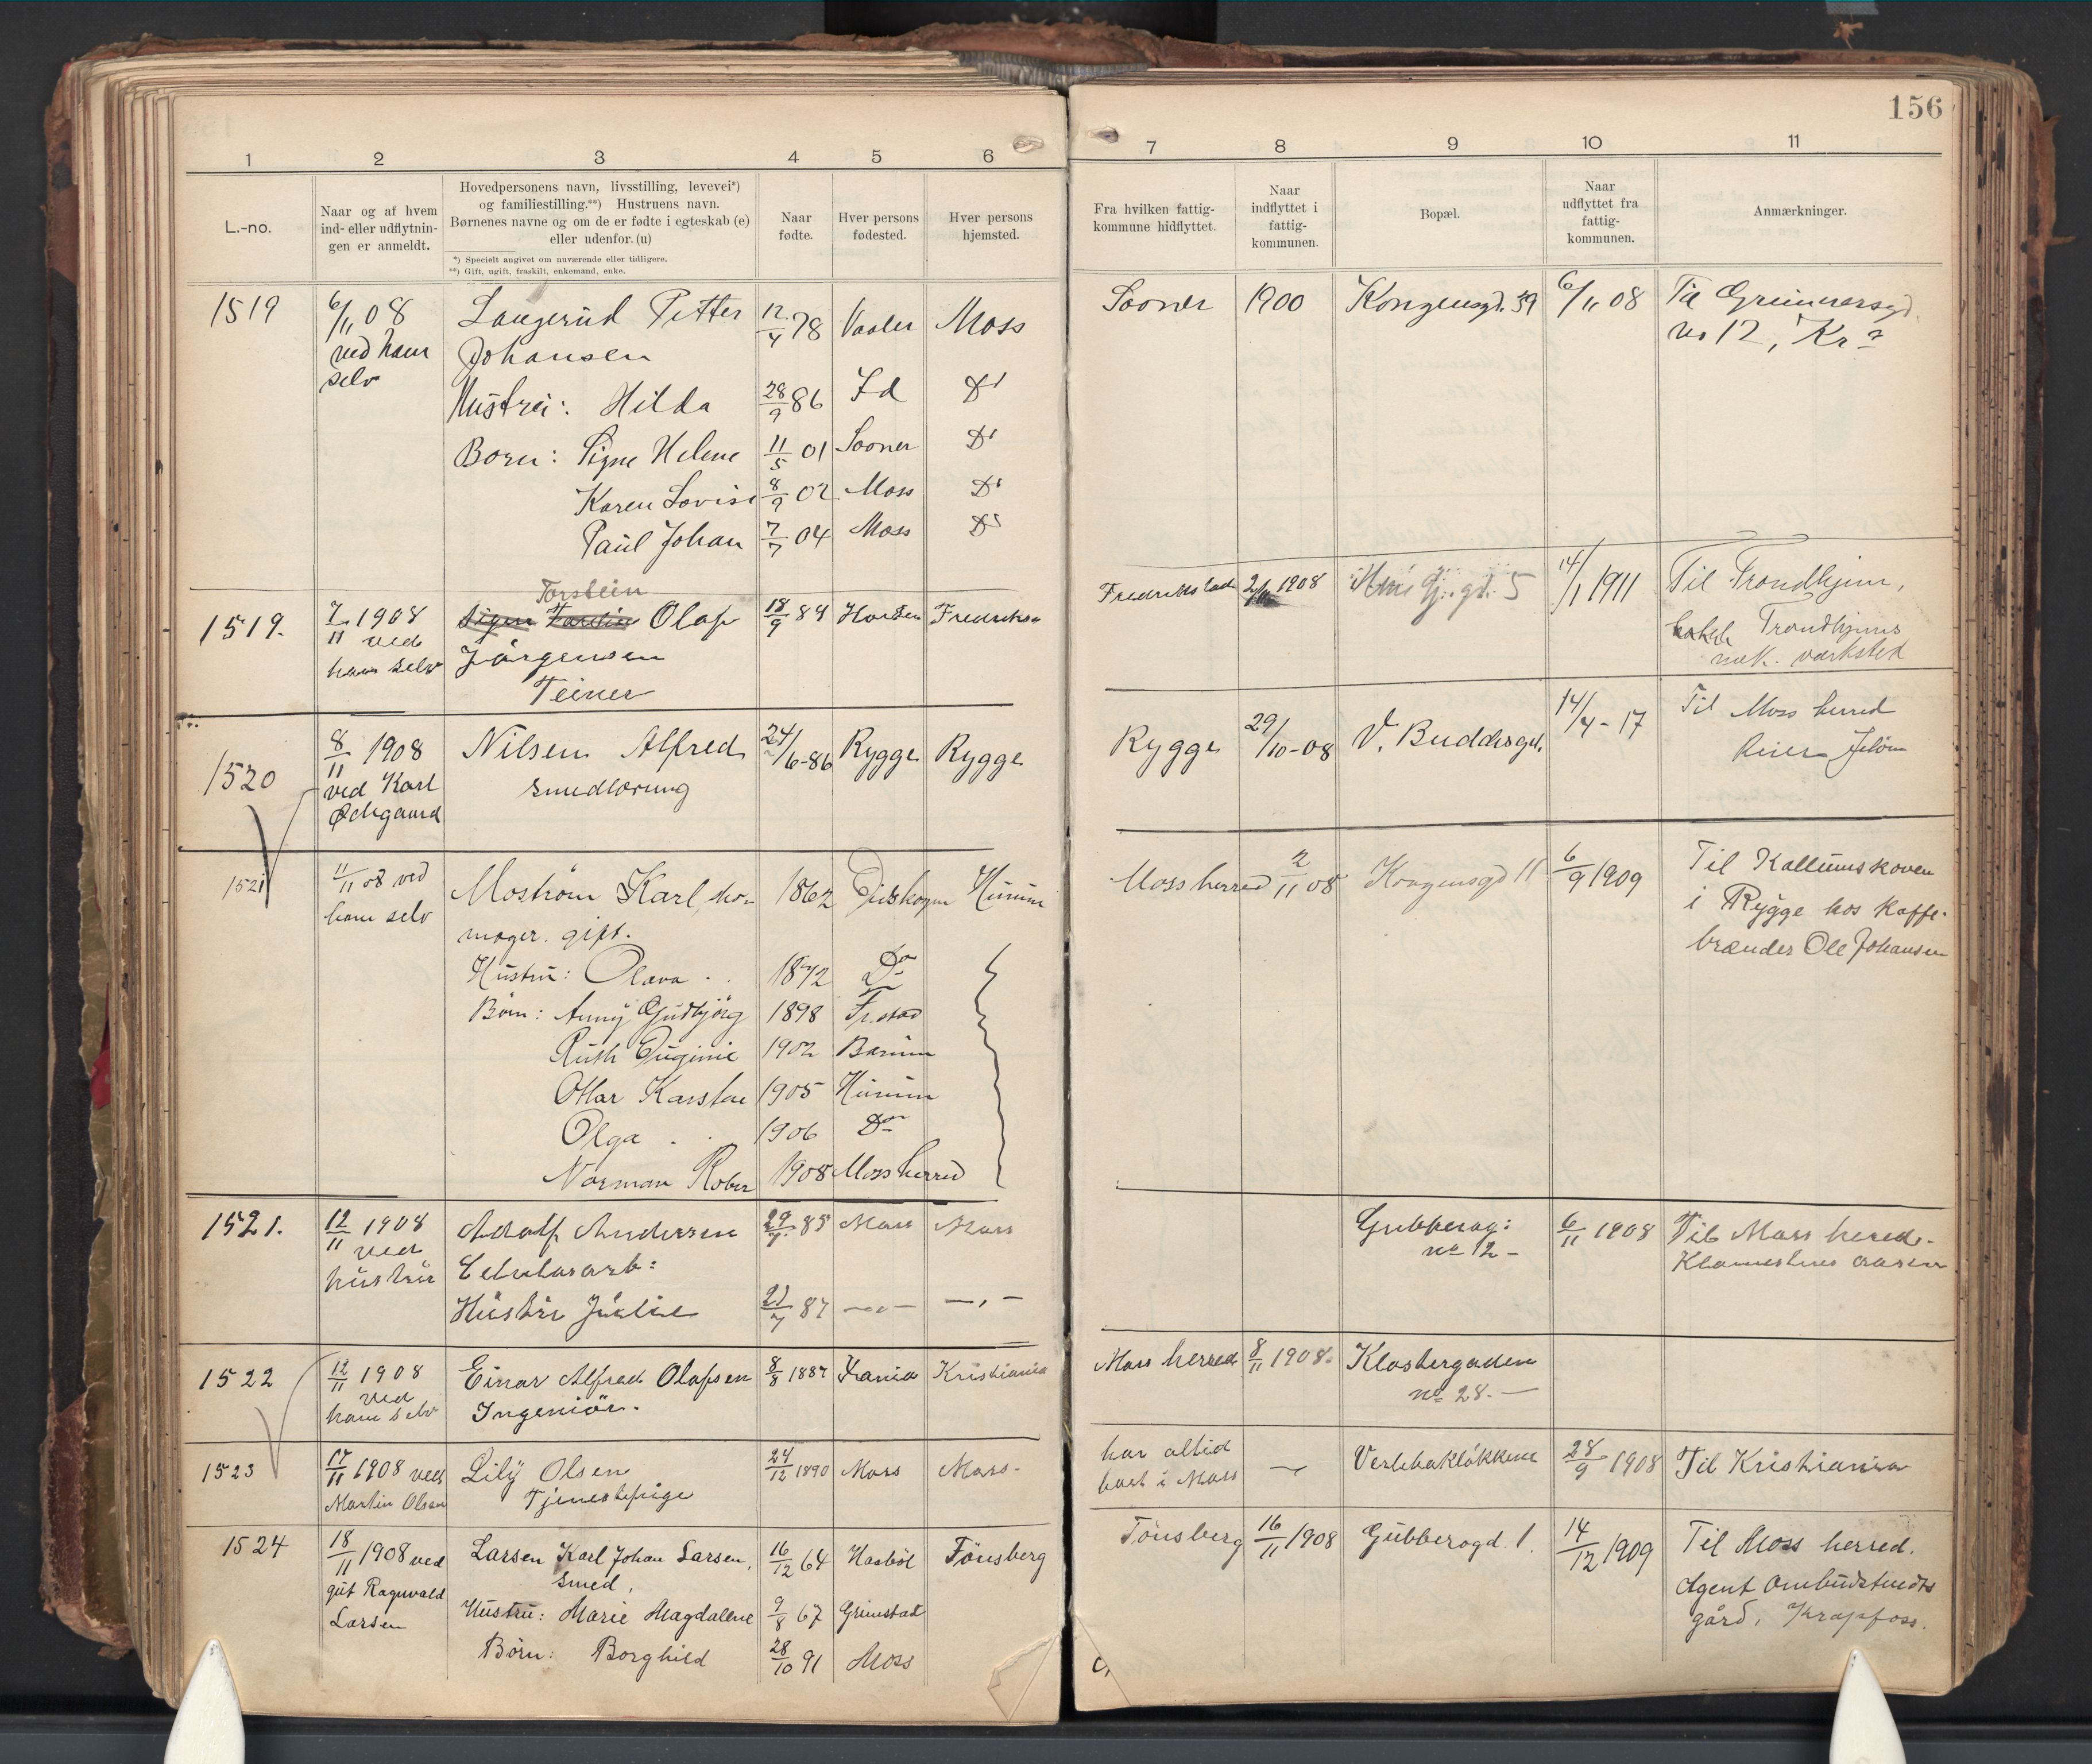 156
1 2 3 4 5 6 7 8 9 10 11
L.-no.
Naar og af hvem
ind- eller udflytnin-
gen er anmeldt.
Hovedpersonens navn, livsstilling, levevei*)
og familiestilling.**) Hustruens navn.
Børnenes navne og om de er fødte i egteskab (e)
eller udenfor. (u)
*) Specielt angivet om nuværende eller tidligere.
**) Gift, ugift, fraskilt, enkemand, enke.
Naar
fødte.
Hver persons
fødested.
Hver persons
hjemsted.
Fra hvilken fattig-
kommune hidflyttet.
Naar
indflyttet i
fattig-
kommunen.
Bopæl.
Naar
udflyttet fra
fattig-
kommunen.
Anmærkninger.
1519 6/11 08 Langerud Petter 12/4 78 Vaaler Moss Sooner 1900 Kongensgd. 39 6/11 08 Til Grünnersgd
ved ham Johansen no 12, Kra
selv
Hustru: Hilda 28/9 86 Id Do
Born: Signe Helene 11/5 01 Sooner Do
Karen Lovise 8/9 02 Moss Do
Paul Johan 7/7 04 Moss Do
Torstein
1519. 7/11 1908 Olaf 18/9 89 Fredriks. Fredrikstad 2/11 1908 gd. 5 14/1 1911 Til Trondhjem,
ved Jörgensen Trondhjems
ham selv mek. værksted
1520 8/11 1908 Nilsen Alfred 24/6-86 Rygge Rygge Rygge 29/10-08 V. Buddesgd. 14/4-17 Til Moss herred
ved Karl smedlærling Jeløen
Ødegaard
1521 11/11 08 ved Moström Karl, sko- 1862 Eidskogen Hurum Moss herred 2/11 08 Kongensgd 11 6/9 1909 Til Kallumskoven
ham selv mager. gift. i Rygge hos Kaffe-
brænder Ole Johansen
Hustru: Olava 1872 Do
Börn: Anny Gudbjörg 1898 Fr.stad
Ruth Euginie 1902 Bærum
Ottar Karsten 1905 Hurum
Olga 1906 Do
Norman Rober 1908 Moss herred
1521. 12/11 1908 Adolf Andersen 29/7 85 Moss Moss Gubberog: 6/11 1908 Til Moss hered.
ved Celulosarb: no 12 -
hustru
Hustru Julie 21/7 87 -„- -„-
1522 12/11 1908 Einar Alfred Olafsen 8/8 1887 Xania Kristiania Moss herred 8/11 1908. Klostergaden
ved Ingeniör. no 28. -
ham selv
1523 17/11 1908 ved Lily Olsen 24/12 1890 Moss Moss- har altid - Verlebakløkken 28/9 1908 Til Kristiania
Martin Olsen Tjenestepige boet i Moss
1524 18/11 1908 ved Larsen Karl Johan Larsen, 16/12 64 Haabøl Tönsberg Tönsberg 16/11 1908 Gubberogd 1. 14/12 1909 Til Moss herred.
gut Ragnvald smed, Agent Ombudstvedts
Larsen Hustru: Marie Magdalene 9/8 67 Grimstad gård, Krapfoss.
Börn: Borghild 28/10 91 Moss